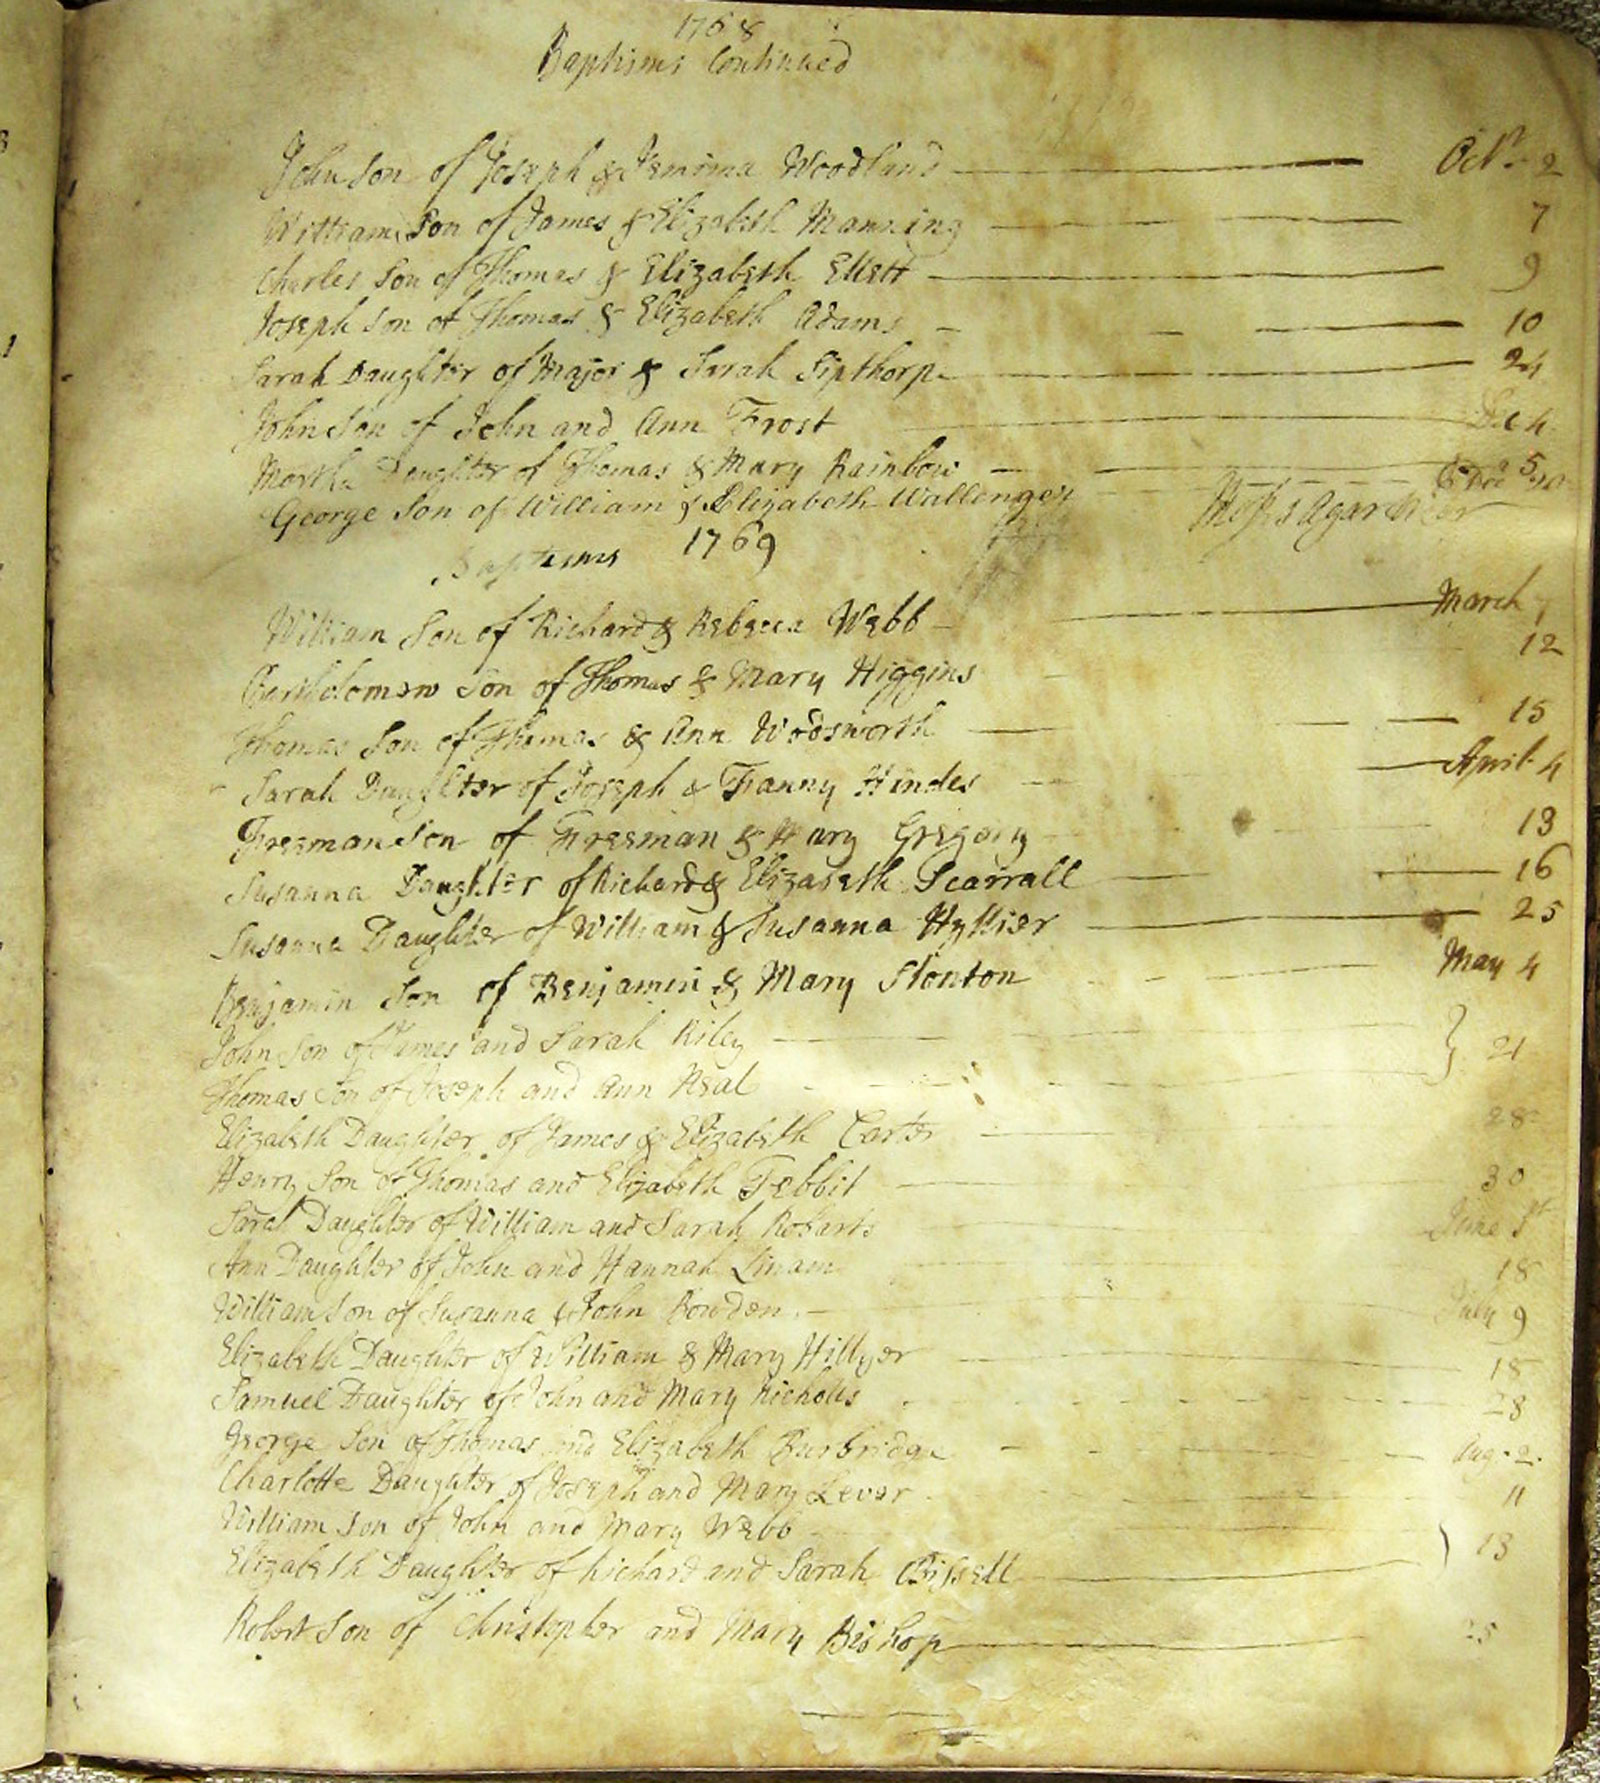 1768
Baptisms Continued
John Son of Joseph & Jemima Woodland Octr. 2
William Son of James & Elizabeth Manning 7
Charles Son of Thomas & Elizabeth Ellett 9
Joseph Son of Thomas & Elizabeth Adams 10
Sarah Daughter of Major & Sarah Sipthorp 24
John Son of John and Ann Frost Dec 4
Martha Daughter of Thomas & Mary Rainbow 5
George Son of William & Elizabeth Wallenger
Agar
Baptisms 1769
William Son of Richard & Rebecca Webb March
Bartholomew Son of Thomas & Mary Higgins 12
Thomas Son of Thomas & Ann Wodsworth 15
Sarah Daughter of Joseph & Fanny Hindes April 4
Freeman Son of Freeman & Mary Gregory 13
Susanna Daughter of Richard & Elizabeth Scarrall 16
Susanna Daughter of William & Susanna Hyllier 25
Benjamin Son of Benjamin & Mary Stonton May 4
John Son of James and Sarah Riley } 21
Thomas Son of Joseph and Ann Neal
Elizabeth Daughter of James & Elizabeth Carter 28
Henry Son of Thomas and Elizabeth Tebbit 30
Sarah Daughter of William and Sarah Robarts June 1st
Ann Daughter of John and Hannah Linam 18
William Son of Susanna & John Bowden July 9
Elizabeth Daughter of William & Mary Hillyer 18
Samuel Daughter of John and Mary Nicholls 28
George Son of Thomas and Elizabeth Burbridge Aug. 2.
Charlotte Daughter of Joseph and Mary Lever 11
William Son of John and Mary Webb } 13
Elizabeth Daughter of Richard and Sarah Bissell
Robert Son of Christopher and Mary Bishop 25